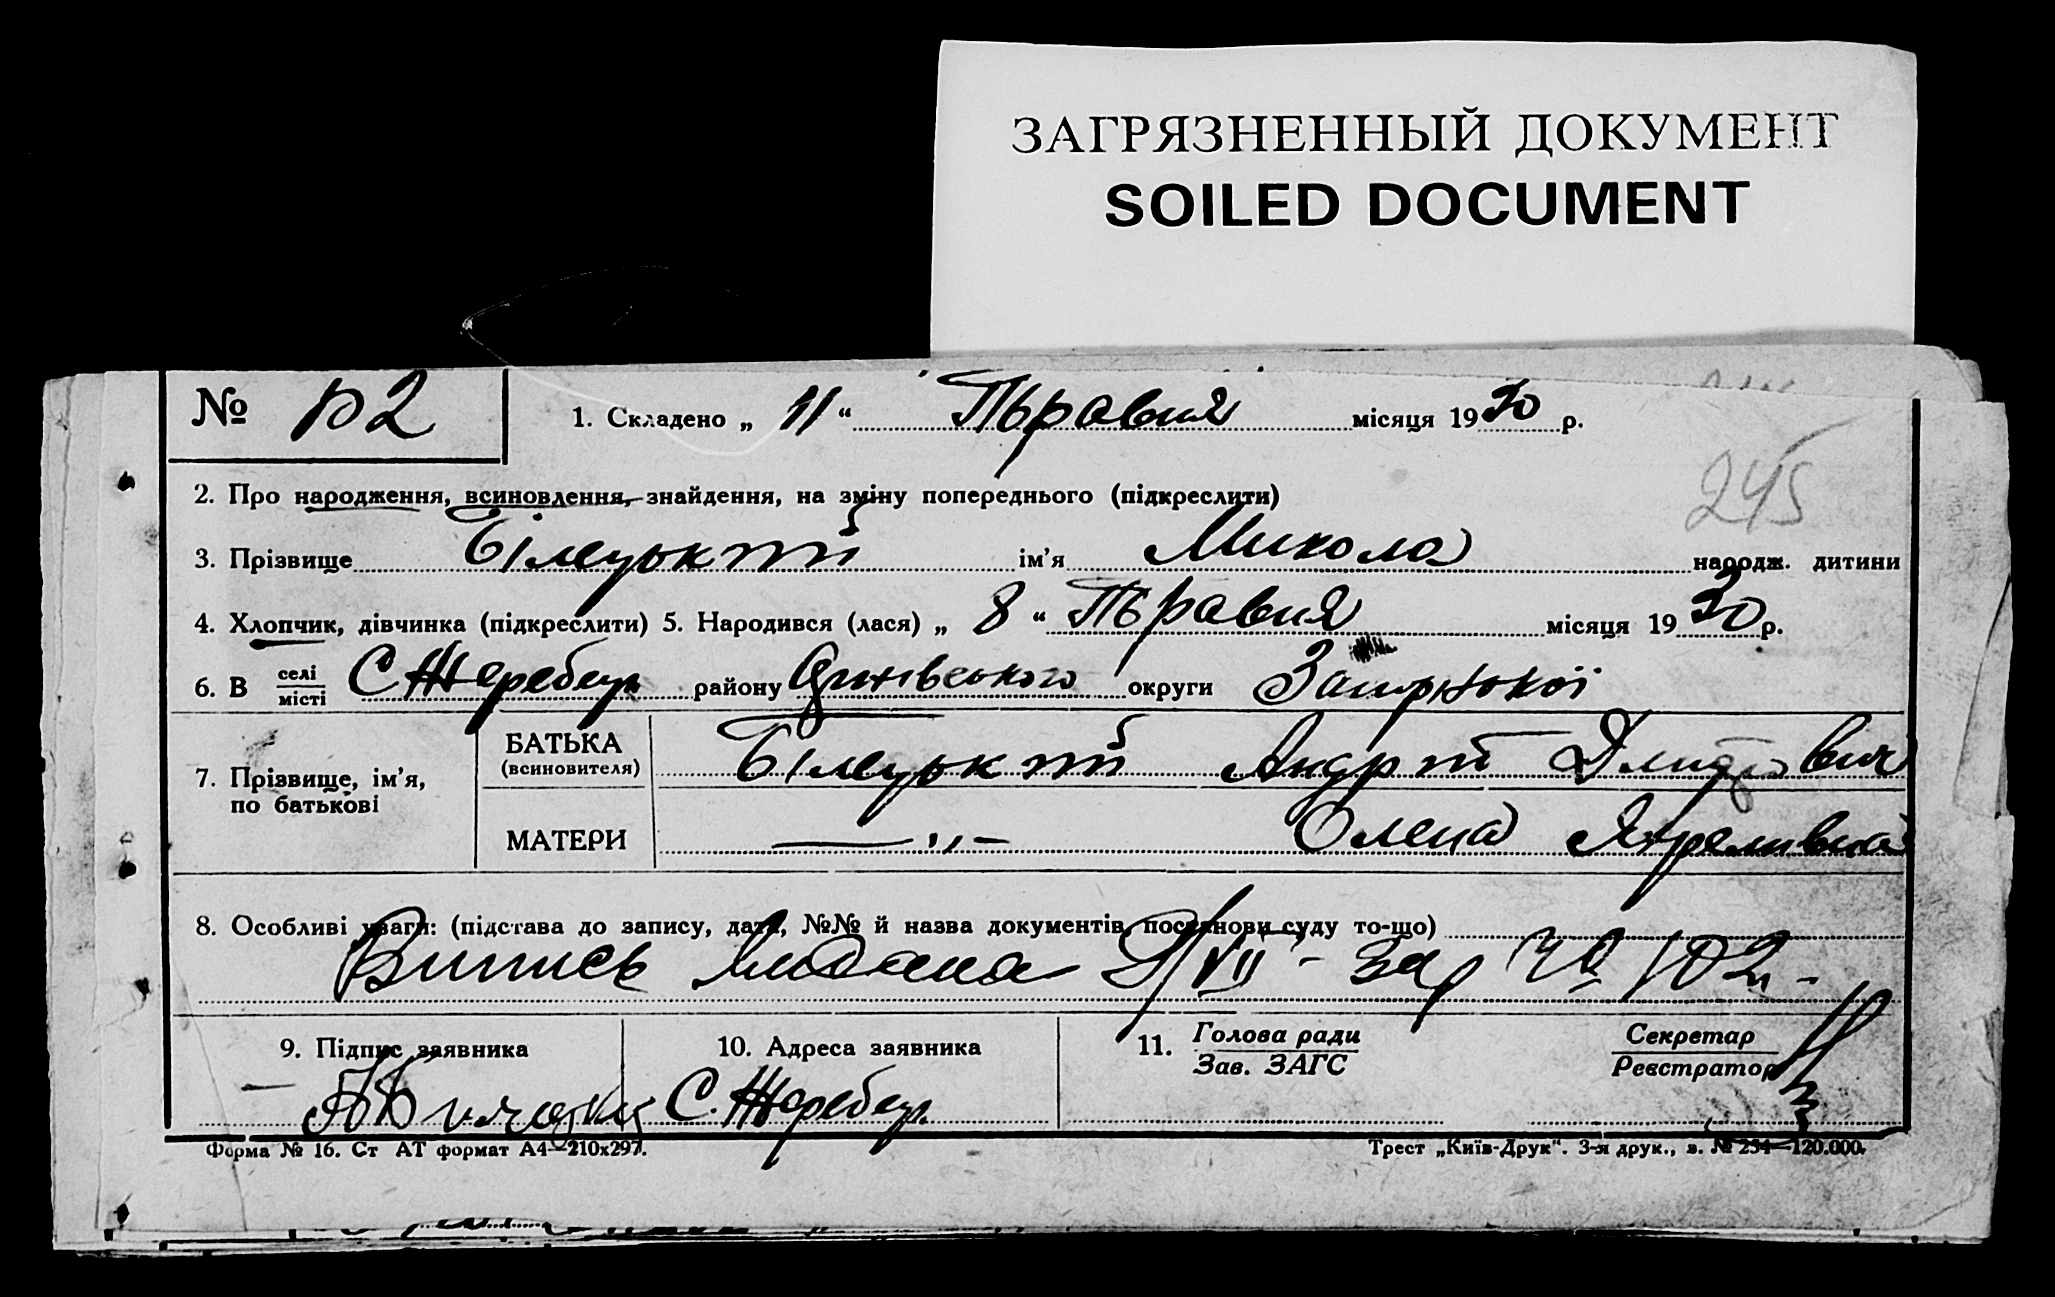 ЗАГРЯЗНЕННЫЙ ДОКУМЕНТ
SOILED DOCUMENT
№ 102 1. Складено „ 11 “ Травня місяця 1930 р.
245
2. Про народження, всиновлення, знайдення, на зміну попереднього (підкреслити)
3. Прізвище Білецький ім’я Микола народж. дитини
4. Хлопчик, дівчинка (підкреслити) 5. Народився (лася) „ 8 “ Травня місяця 1930 р.
6. В селі місті С Жеребець району округи Запорізької
7. Прізвище, ім’я, по батькові
БАТЬКА (всиновителя) Білецький Андрій Дмитрович
МАТЕРИ — „ — Олена
8. Особливі уваги: (підстава до запису, дата, №№ й назва документів, постанови суду то-що)
Випись видана за № 102 -
9. Підпис заявника 10. Адреса заявника 11. Голова ради Зав. ЗАГС Секретар Реєстратор
С. Жеребець
Форма № 16. Ст АТ формат А4—210х297. Трест „Київ-Друк“. 3-я друк., з. № 254—120.000.